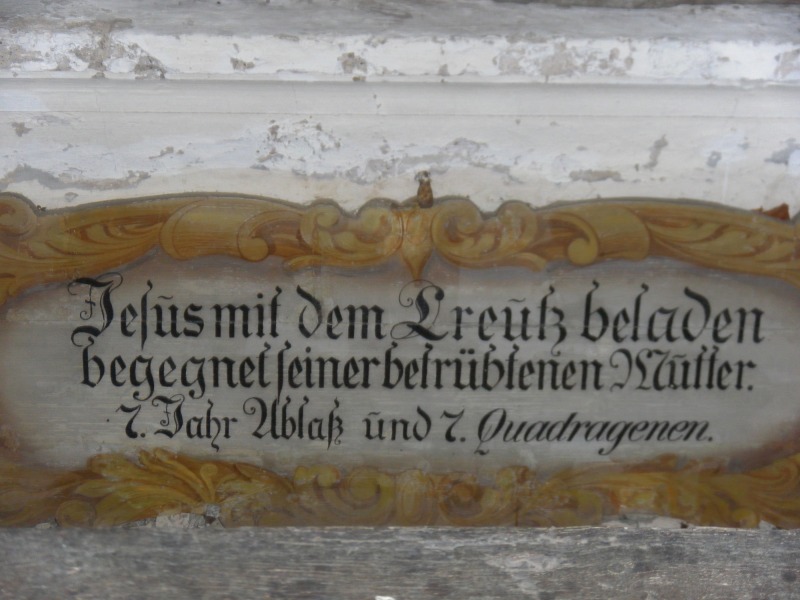 Jesus mit dem Creutz beladen
begegnet seiner betrübtenen Mutter.
7. Jahr Ablaß und 7. Quadragenen.